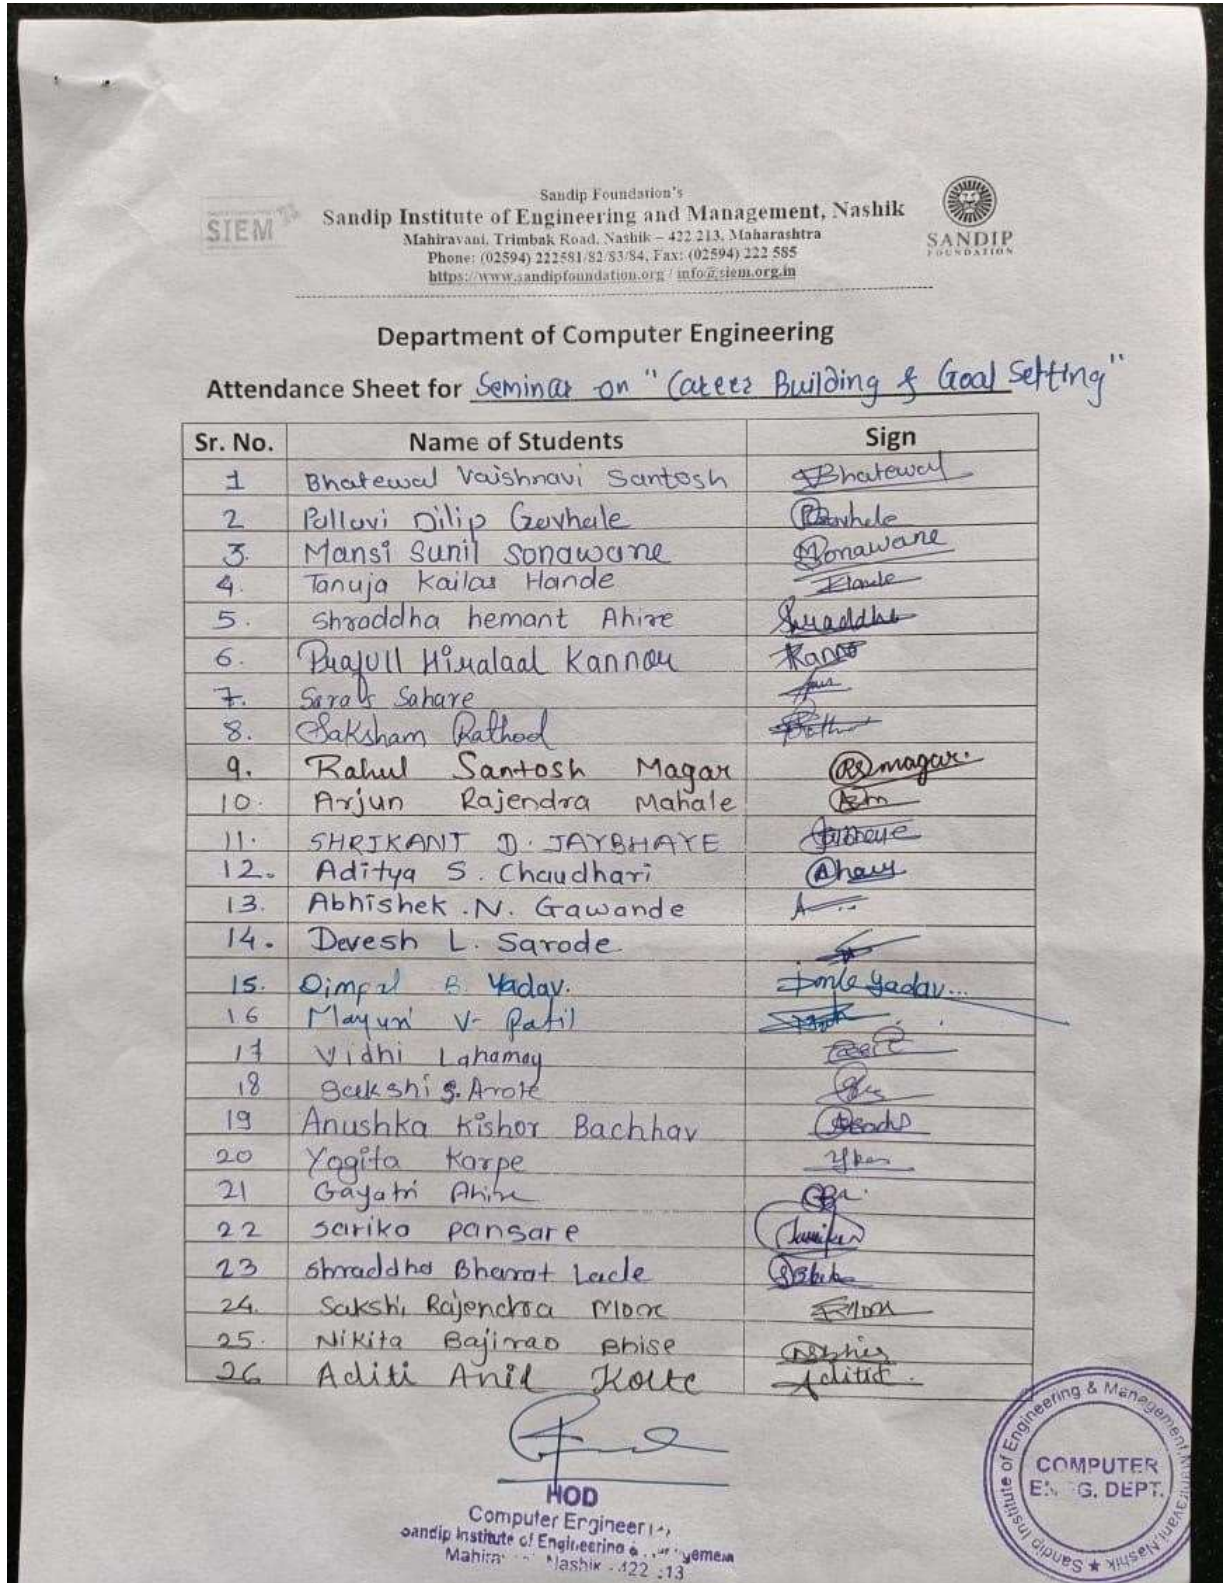 SIEM
Sandip Foundation's
Sandip Institute of Engineering and Management, Nashik
Mahiravani, Trimbak Road, Nashik – 422 213, Maharashtra
Phone: (02594) 222581/82/83/84, Fax: (02594) 222 585
https://www.sandipfoundation.org / info@siem.org.in
SANDIP
FOUNDATION
Department of Computer Engineering
Attendance Sheet for Seminar on "Career Building & Goal Setting"
Sr. No. Name of Students Sign
1 Bhatewal Vaishnavi Santosh Bhatewal
2 Pallavi Dilip Govhale
3. Mansi Sunil Sonawane Sonawane
4. Tanuja Kailas Hande
5. Shraddha hemant Ahire Shraddha
6. Prafull Hiralaal Kannor
7. Sahare
8. Saksham Rathod
9. Rahul Santosh Magar RSmagar.
10. Arjun Rajendra Mahale
11. SHRIKANT D. JAYBHAYE
12. Aditya S. Chaudhari
13. Abhishek .N. Gawande
14. Devesh L. Sarode
15. Dimpal B. Yadav. Yadav...
16 Mayuri V. Patil
17 Vidhi Lahamay
18 Sakshi S. Arote
19 Anushka Kishor Bachhav
20 Yogita Karpe
21 Gayatri Ahire
22 Sarika pansare
23 Shraddha Bharat Lade
24. Sakshi Rajendra More
25. Nikita Bajirao Bhise
26 Aditi Anil Kolte
HOD
Computer Engineer
Sandip Institute of Engineering &
Nashik
Sandip Institute of Engineering & Management, Mahiravani, Nashik ★
COMPUTER
G. DEPT.